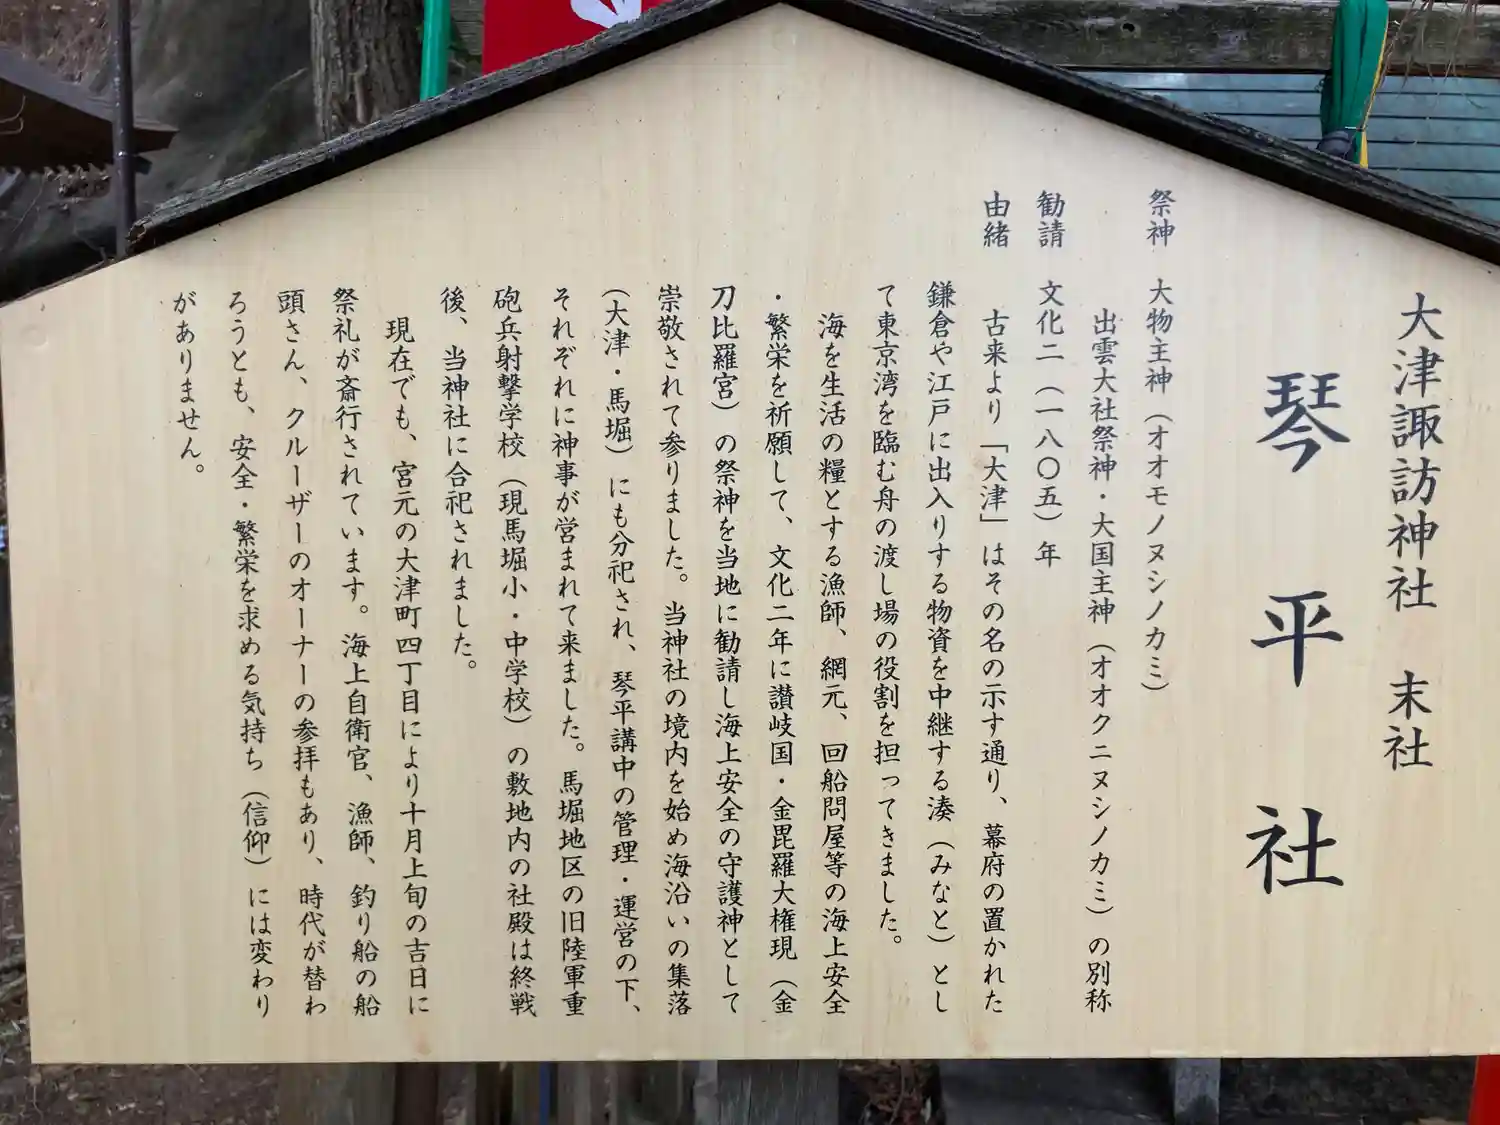 大津諏訪神社 末社
琴平社
祭神 大物主神（オオモノヌシノカミ）
出雲大社祭神・大国主神（オオクニヌシノカミ）の別称
勧請 文化二（一八〇五）年
由緒 古来より「大津」はその名の示す通り、幕府の置かれた
鎌倉や江戸に出入りする物資を中継する湊（みなと）とし
て東京湾を臨む舟の渡し場の役割を担ってきました。
海を生活の糧とする漁師、網元、回船問屋等の海上安全
・繁栄を祈願して、文化二年に讃岐国・金毘羅大権現（金
刀比羅宮）の祭神を当地に勧請し海上安全の守護神として
崇敬されて参りました。当神社の境内を始め海沿いの集落
（大津・馬堀）にも分祀され、琴平講中の管理・運営の下、
それぞれに神事が営まれて来ました。馬堀地区の旧陸軍重
砲兵射撃学校（現馬堀小・中学校）の敷地内の社殿は終戦
後、当神社に合祀されました。
現在でも、宮元の大津町四丁目により十月上旬の吉日に
祭礼が斎行されています。海上自衛官、漁師、釣り船の船
頭さん、クルーザーのオーナーの参拝もあり、時代が替わ
ろうとも、安全・繁栄を求める気持ち（信仰）には変わり
がありません。